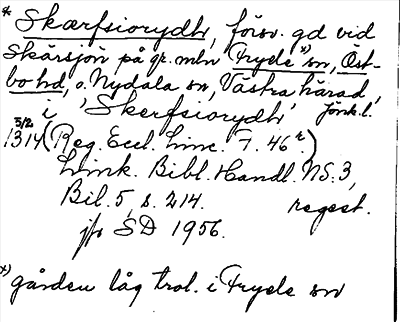 * Skærfsiorydh, försv. gd vid
Skärsjön på gr. mln Fryele x) sn, Öst-
bo hd, o. Nydala sn, Västra härad,
i 'Skerfsiorydh' Jönk.l.
5/2
1314 (Reg. Eccl. Linc. F. 46 r.)
Link. Bibl. Handl. NS. 3,
Bil. 5, s. 214. regest.
jfr SD 1956.
x) gården låg trol. i Fryele sn